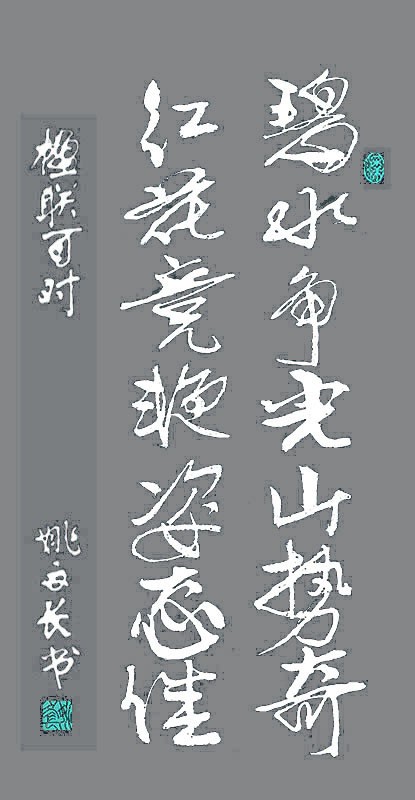 碧水争光山势奇
红花竞艳姿态佳
楹联可时
姚文长书